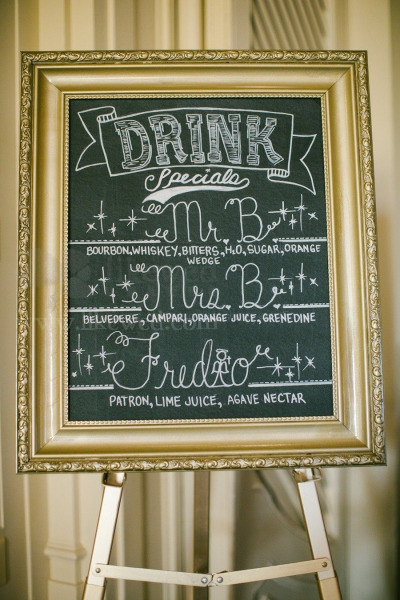 DRINK
Specials
"Mr. B."
BOURBON, WHISKEY, BITTERS, H2O, SUGAR, ORANGE
WEDGE
"Mrs. B."
BELVEDERE, CAMPARI, ORANGE JUICE, GRENEDINE
"Fredio"
PATRON, LIME JUICE, AGAVE NECTAR